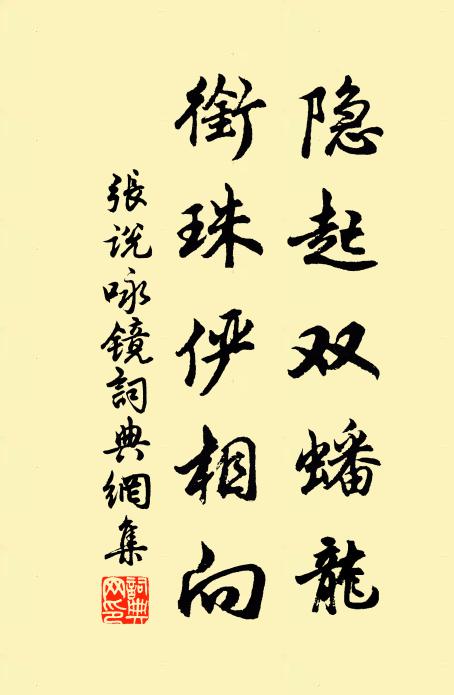 隐起双蟠龍
銜珠俨相向
張说咏镜詞典網集
詞典網印